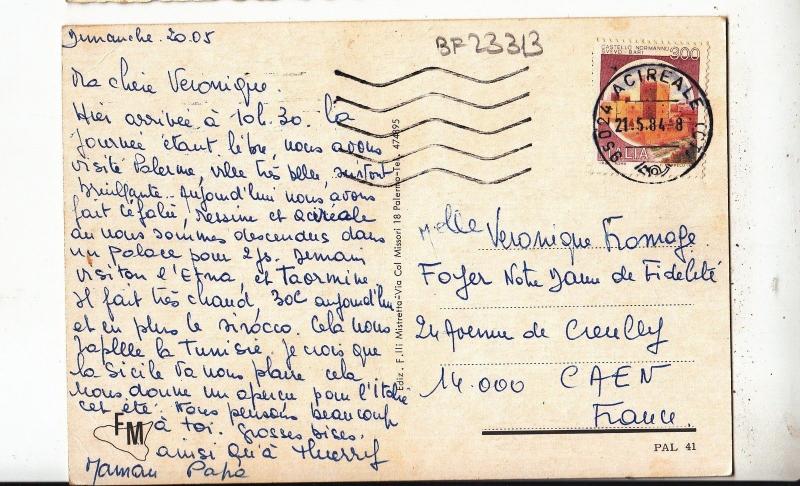 Dimanche. 20.05
Ma chère Veronique.
Hier arrivée à 10h.30. la
journée étant libre, nous avons
visité Palerme, ville très belle, surtout
Bruillante. Aujourd'hui nous avons
fait Céfalu, Messine et acireale
au nous sommes descendus dans
un palace pour 2 js. Demain
visiton l'Etna, et Taormine
Il fait très chaud 30C aujourd'hui
et en plus le sirocco. Cela nous
la Tunisie, je crois que
la Sicile va nous plaire cela
nous donne un apercu pour l'Italie
cet été. Nous pensons beaucoup
à toi. grosses bises.
ainsi qu'à Thierry
Maman Papa
FM
BF23313
Ediz. F.lli Mistretta-Via Col Missori 18 Palermo-Tel. 474895
CASTELLO NORMANNO
SVEVO - BARI
300
ITALIA
95024 ACIREALE (CT)
21.5.84-8
Melle Veronique Fromage
Foyer Notre Dame de Fidelité
24 Avenue de Creully
14.000 CAEN
France
PAL 41